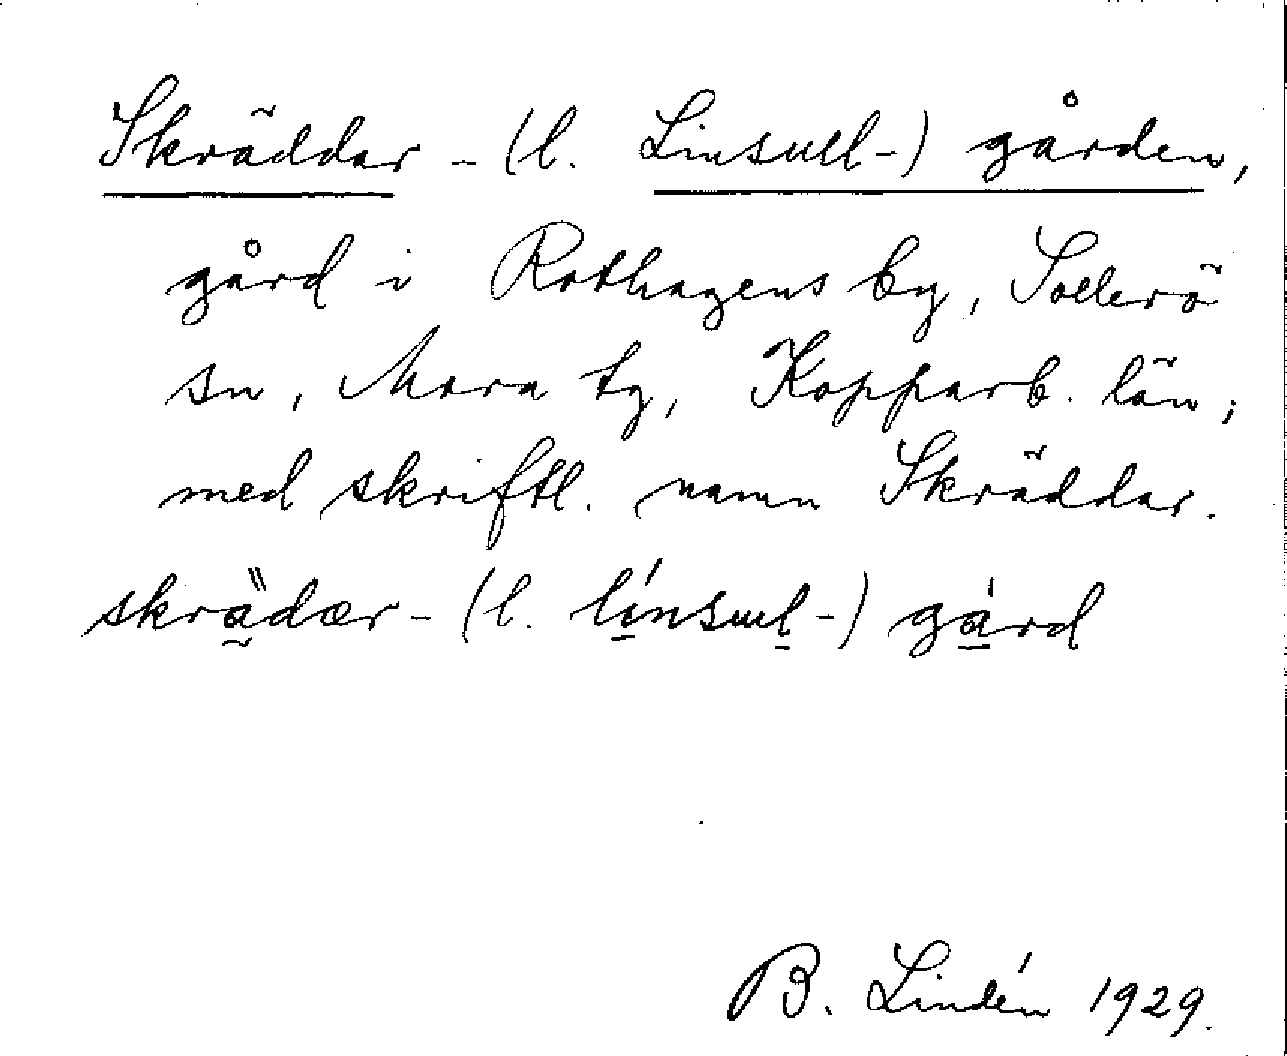 Skräddar- (l. Linsull-) gården,
gård i Rothagens by, Sollerö
sn, Mora tg, Kopparb. län;
med skriftl. namn Skräddar.
skrädær- (l. línsul-) gárd
B. Lindén 1929.